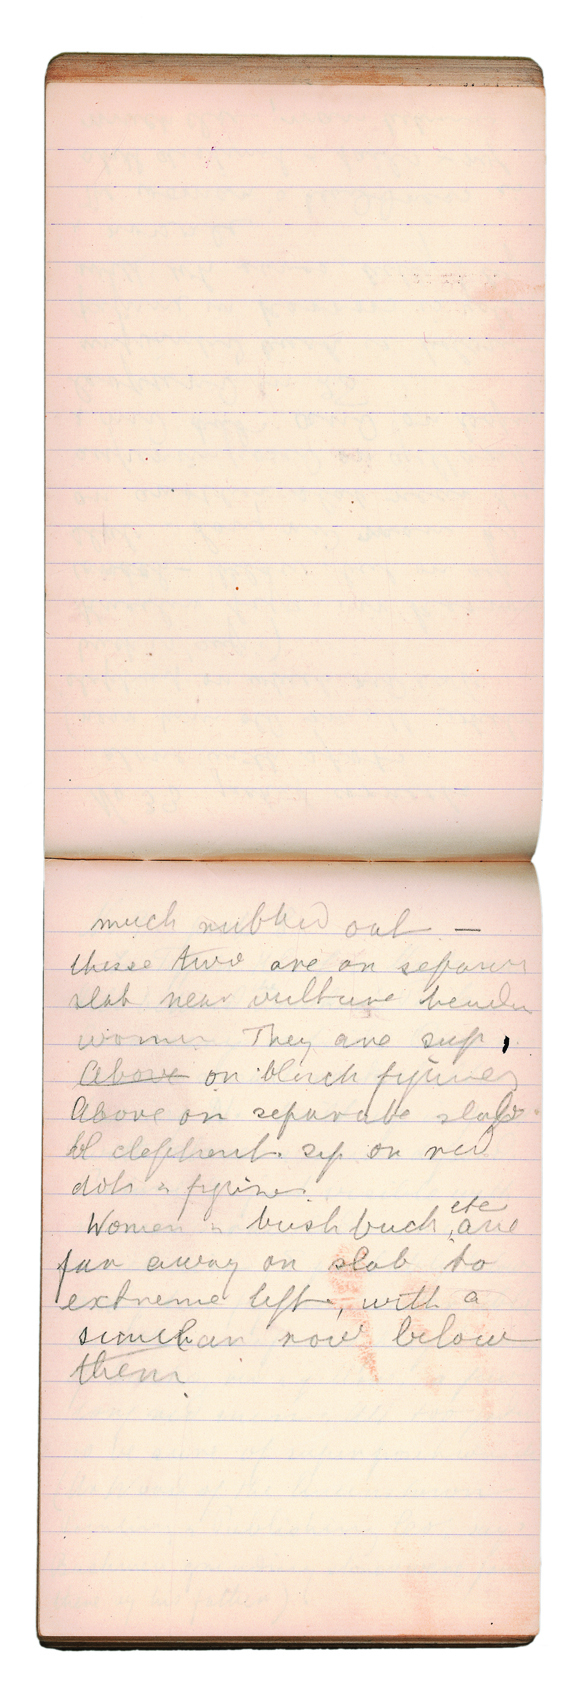 much rubbed out —
these two are on separate
slab near vulture headed
women They are sup,
Above on black figures
Above on separate slabs.
Bl elephant. sup on red
dots & figures.
Women & bushbuck, etc are
far away on slab to
extreme left, with a
similar row below
them